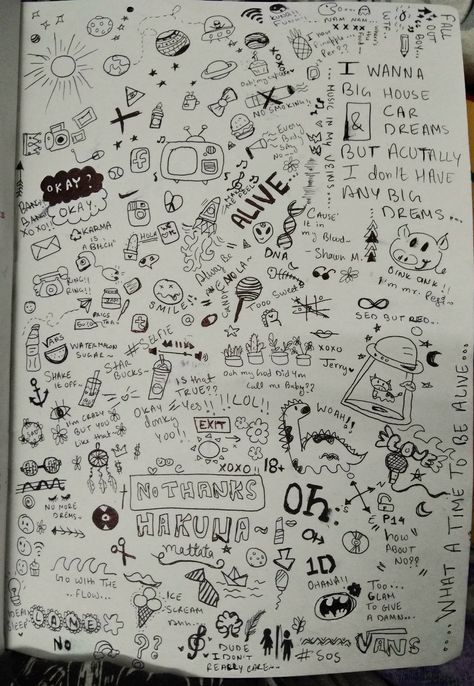 NAM NAM...
FALL
OUT
BOY...
XOXO
NO SMOKING!!
Every
Body
Say
No..
...MUSIC IN MY VEINS...
I WANNA
BIG HOUSE
& CAR
DREAMS
BUT ACUTALLY
I don't HAVE
ANY BIG
DREMS...
OKAY?
OKAY.
XO XO!!
KARMA
IS A
"BITCH"
HOLA
ALIVE.
DNA
'Cause
It in
my Blood~
- Shawn M.
OINK OINK!!
I'm mr. Peg..
RING!!
RING!!
SMILE!!
CANDY
Tooo Sweet
SEO BUT RED...
VANS
WATERMELON
SUGAR~
#SELFIE
SHAKE
IT OFF~
STAR
BUCKS~
IS that
TRUE??
Ooh my God Did You
Call me Baby??
XOXO
Jerry
OKAY ~Yes!!
donky
yoo!!
LOL!!
I'm CRAZY
BUT YOU
Like that~
EXIT
WOAH!!
XOXO
18+
LOVE
NO THANKS
OH.
NO MORE
DREMS~
HAKUNA
mattata
P14
HOW
ABOUT
NO??
1D
OHANA!!
GO WITH THE
FLOW...
ICE
SCREAM
Too...
GLAM
TO GIVE
A DAMN...
SLEEP
LANE
NO
??
DUDE
I DON'T
REALLY CARE~
#SOS
VANS
....WHAT A TIME TO BE ALIVE....